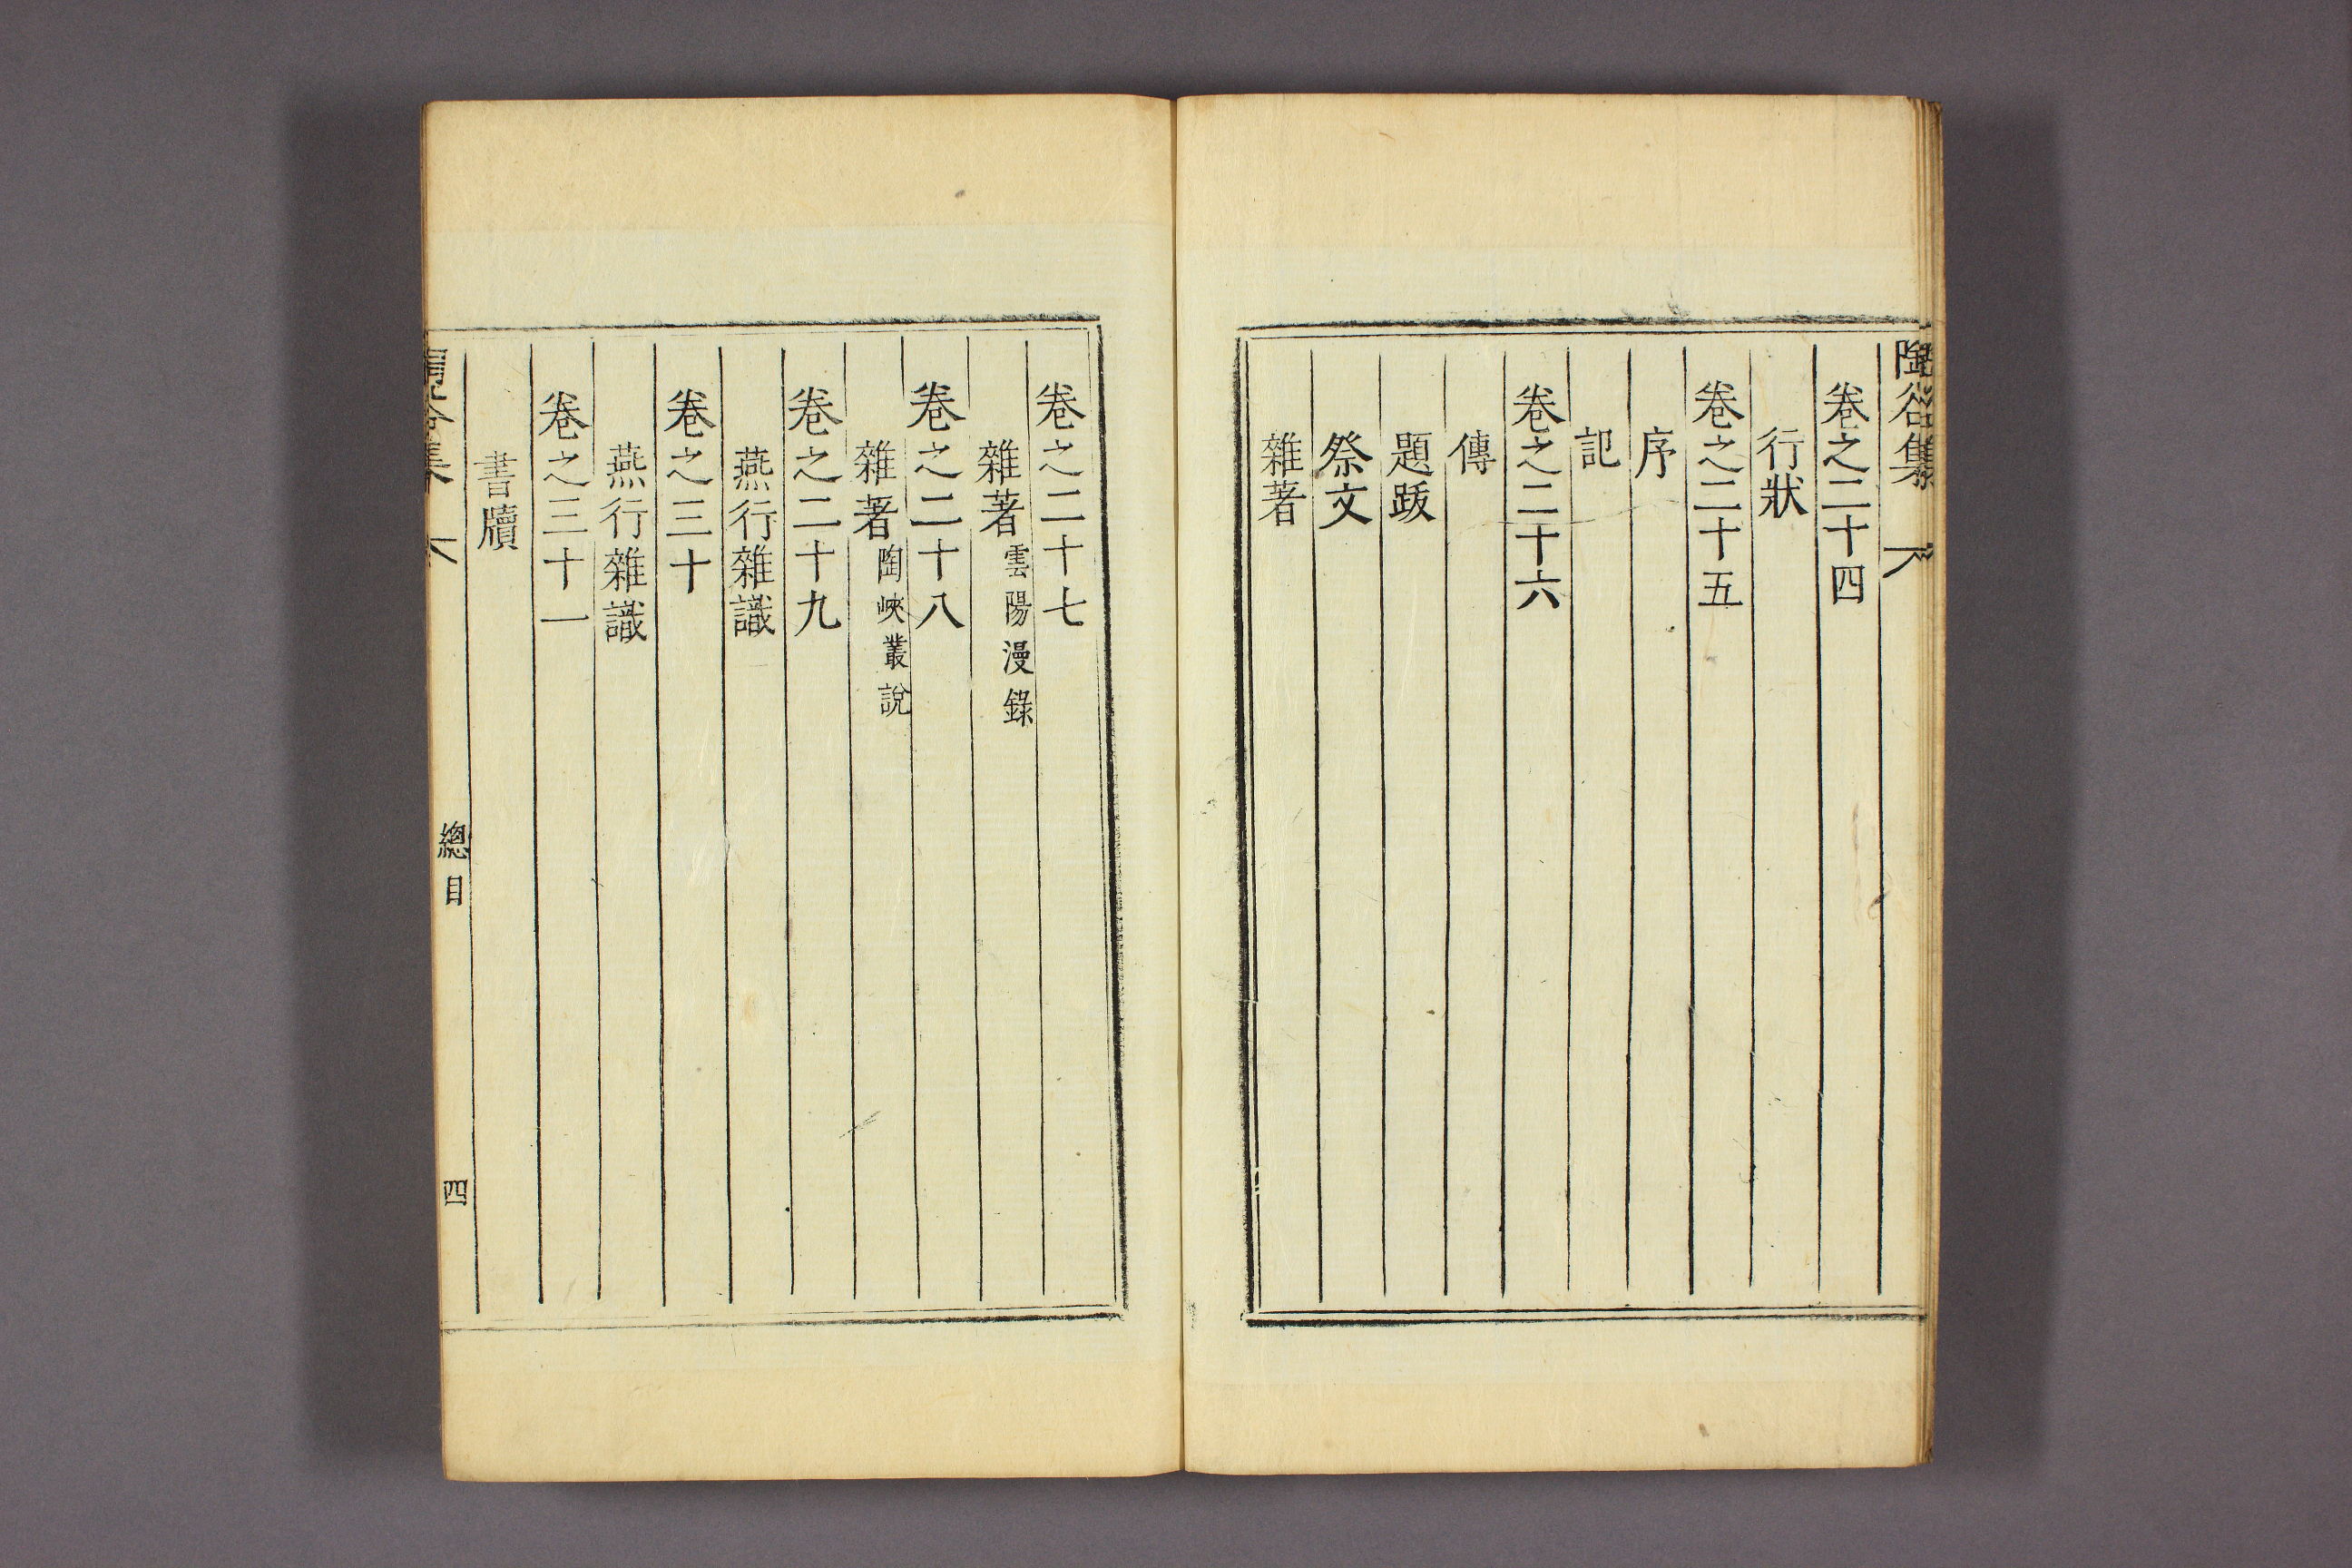 陶谷集
卷之二十四
行狀
卷之二十五
序
記
卷之二十六
傳
題跋
祭文
雜著
卷之二十七
雜著雲陽漫錄
卷之二十八
雜著陶峽叢說
卷之二十九
燕行雜識
卷之三十
燕行雜識
卷之三十一
書牘
陶谷集 總目 四